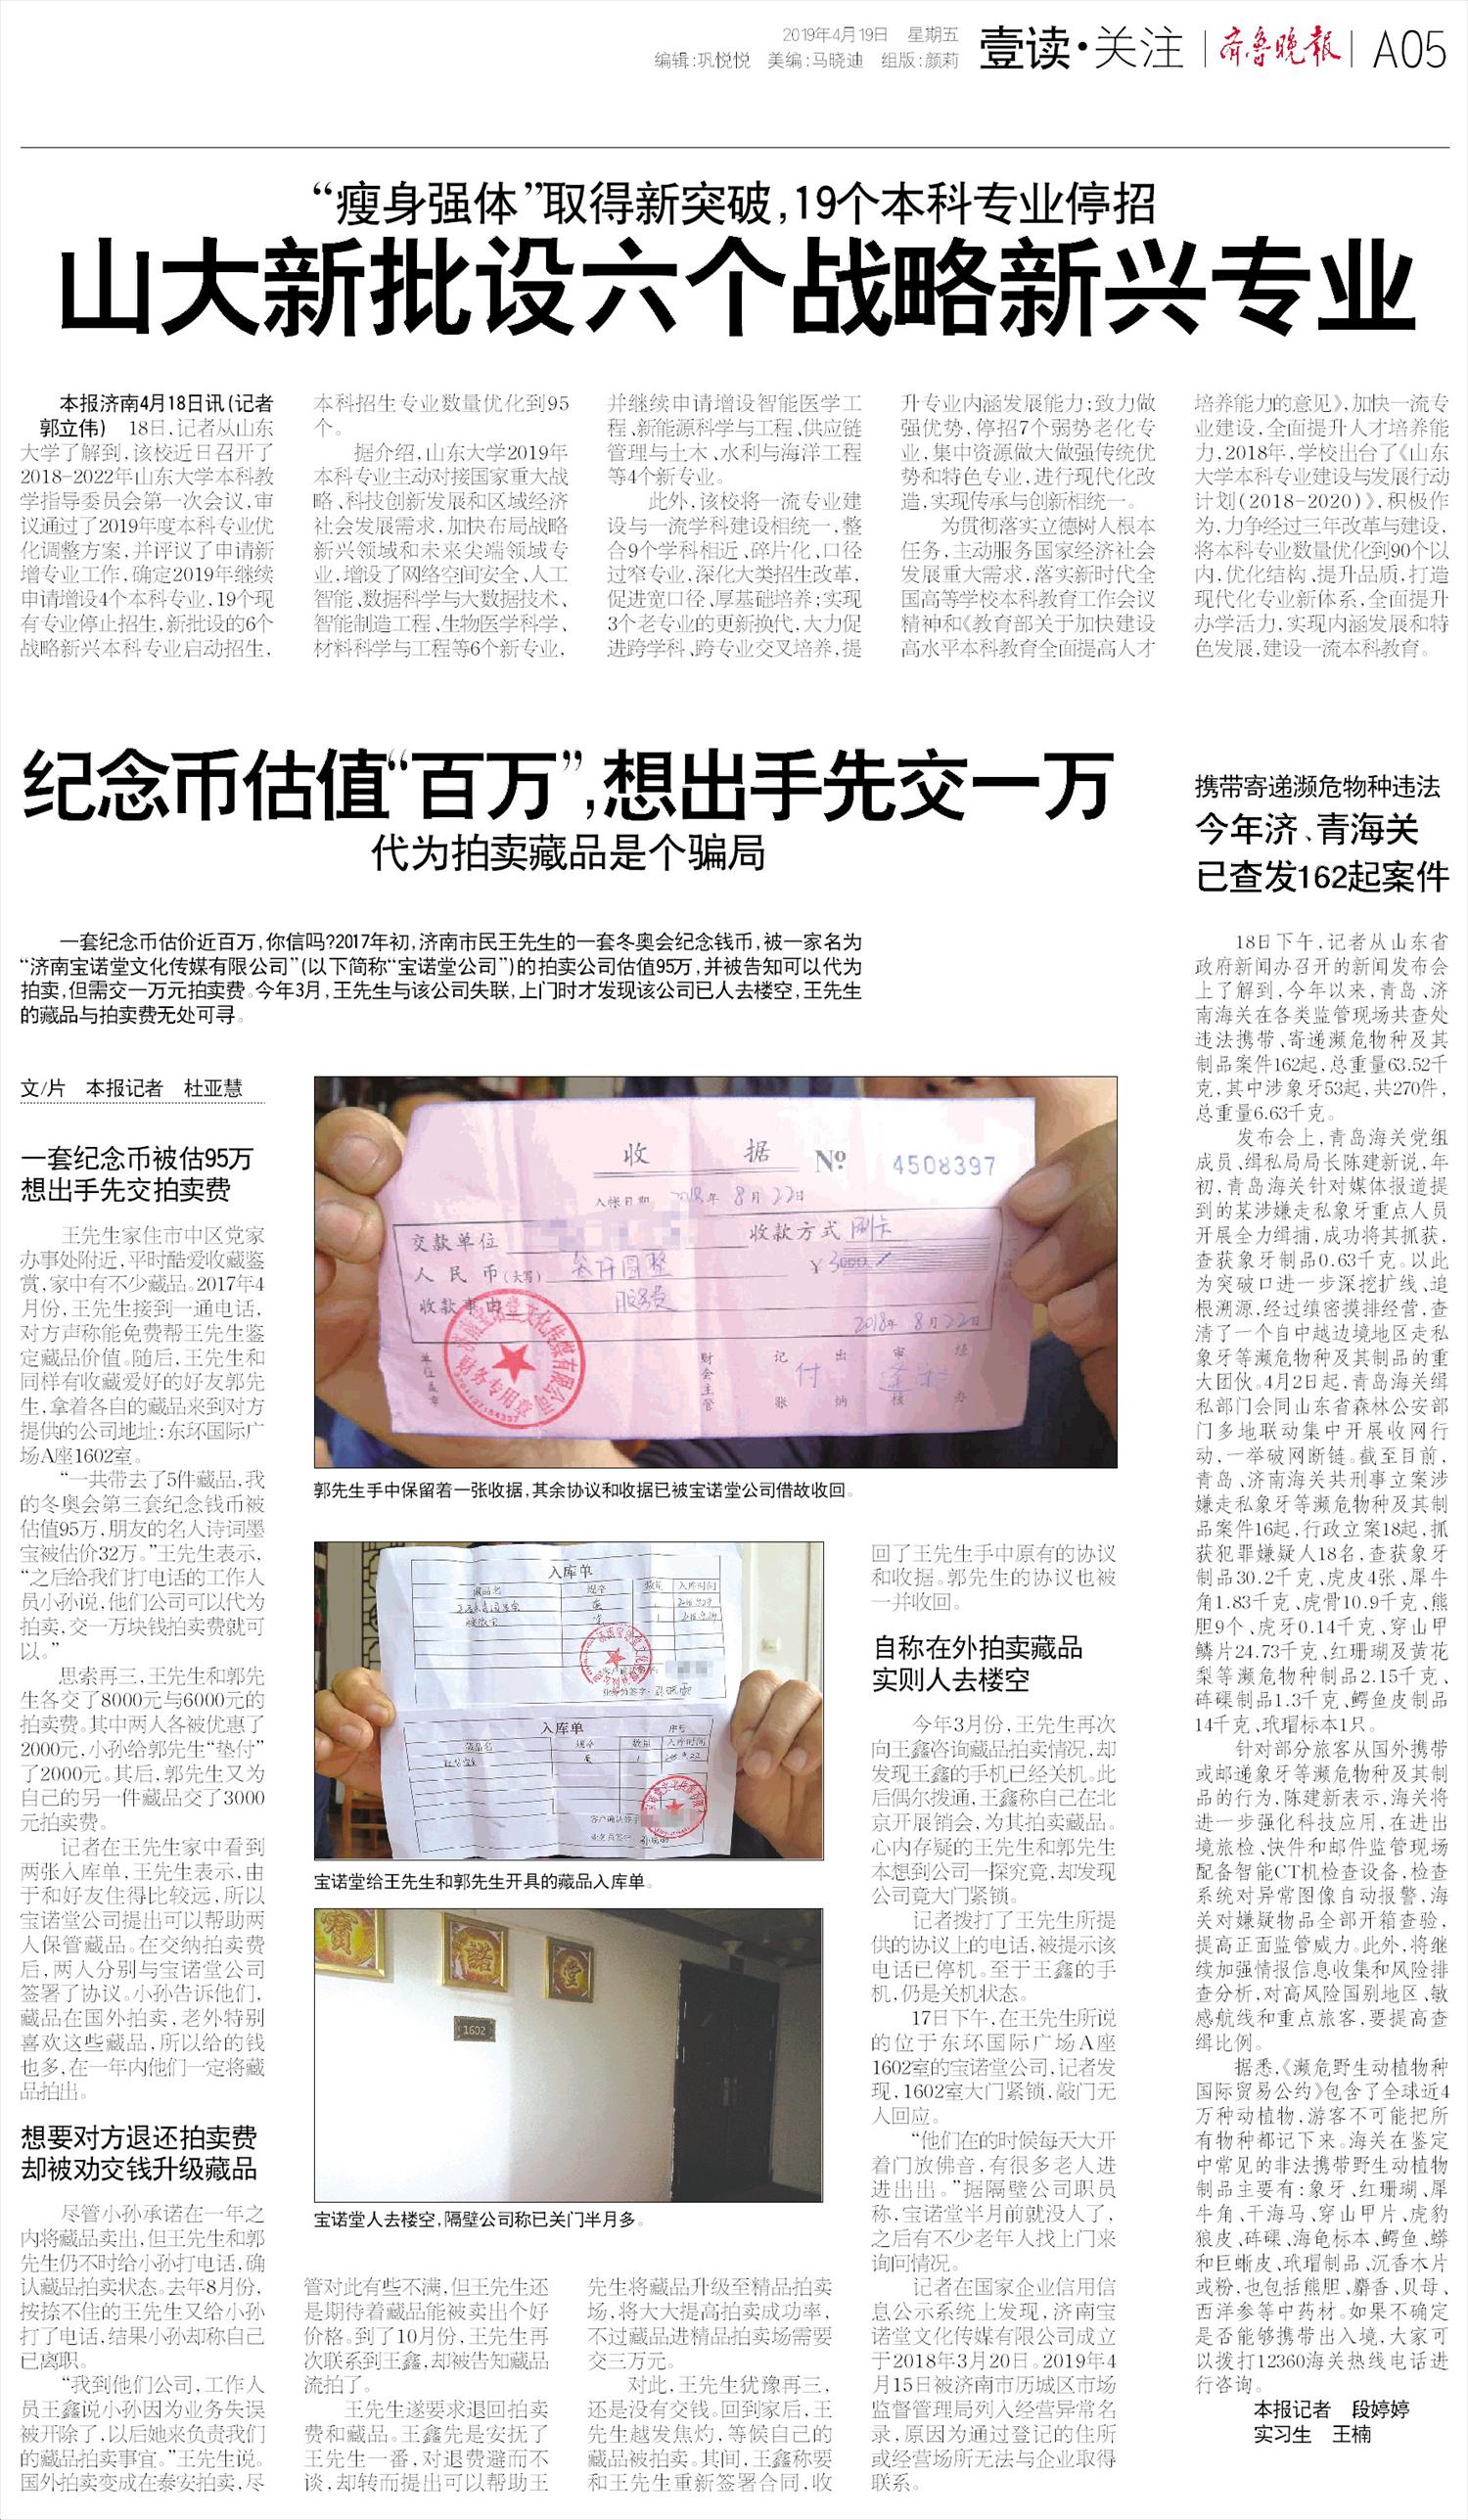 2019年4月19日 星期五
编辑:巩悦悦 美编:马晓迪 组版:颜莉
壹读·关注
齐鲁晚报
A05
“瘦身强体”取得新突破,19个本科专业停招
山大新批设六个战略新兴专业
本报济南4月18日讯(记者
郭立伟) 18日,记者从山东
大学了解到,该校近日召开了
2018-2022年山东大学本科教
学指导委员会第一次会议,审
议通过了2019年度本科专业优
化调整方案,并评议了申请新
增专业工作,确定2019年继续
申请增设4个本科专业,19个现
有专业停止招生,新批设的6个
战略新兴本科专业启动招生,
本科招生专业数量优化到95
个。
据介绍,山东大学2019年
本科专业主动对接国家重大战
略、科技创新发展和区域经济
社会发展需求,加快布局战略
新兴领域和未来尖端领域专
业,增设了网络空间安全、人工
智能、数据科学与大数据技术、
智能制造工程、生物医学科学、
材料科学与工程等6个新专业,
并继续申请增设智能医学工
程、新能源科学与工程、供应链
管理与土木、水利与海洋工程
等4个新专业。
此外,该校将一流专业建
设与一流学科建设相统一,整
合9个学科相近、碎片化、口径
过窄专业,深化大类招生改革,
促进宽口径、厚基础培养;实现
3个老专业的更新换代,大力促
进跨学科、跨专业交叉培养,提
升专业内涵发展能力;致力做
强优势,停招7个弱势老化专
业,集中资源做大做强传统优
势和特色专业,进行现代化改
造,实现传承与创新相统一。
为贯彻落实立德树人根本
任务,主动服务国家经济社会
发展重大需求,落实新时代全
国高等学校本科教育工作会议
精神和《教育部关于加快建设
高水平本科教育全面提高人才
培养能力的意见》,加快一流专
业建设,全面提升人才培养能
力,2018年,学校出台了《山东
大学本科专业建设与发展行动
计划(2018-2020)》,积极作
为,力争经过三年改革与建设,
将本科专业数量优化到90个以
内,优化结构、提升品质,打造
现代化专业新体系,全面提升
办学活力,实现内涵发展和特
色发展,建设一流本科教育。
纪念币估值“百万”,想出手先交一万
代为拍卖藏品是个骗局
一套纪念币估价近百万,你信吗?2017年初,济南市民王先生的一套冬奥会纪念钱币,被一家名为
“济南宝诺堂文化传媒有限公司”(以下简称“宝诺堂公司”)的拍卖公司估值95万,并被告知可以代为
拍卖,但需交一万元拍卖费。今年3月,王先生与该公司失联,上门时才发现该公司已人去楼空,王先生
的藏品与拍卖费无处可寻。
文/片 本报记者 杜亚慧
一套纪念币被估95万
想出手先交拍卖费
王先生家住市中区党家
办事处附近,平时酷爱收藏鉴
赏,家中有不少藏品。2017年4
月份,王先生接到一通电话,
对方声称能免费帮王先生鉴
定藏品价值。随后,王先生和
同样有收藏爱好的好友郭先
生,拿着各自的藏品来到对方
提供的公司地址:东环国际广
场A座1602室。
“一共带去了5件藏品,我
的冬奥会第三套纪念钱币被
估值95万,朋友的名人诗词墨
宝被估价32万。”王先生表示,
“之后给我们打电话的工作人
员小孙说,他们公司可以代为
拍卖,交一万块钱拍卖费就可
以。”
思索再三,王先生和郭先
生各交了8000元与6000元的
拍卖费。其中两人各被优惠了
2000元,小孙给郭先生“垫付”
了2000元。其后,郭先生又为
自己的另一件藏品交了3000
元拍卖费。
记者在王先生家中看到
两张入库单,王先生表示,由
于和好友住得比较远,所以
宝诺堂公司提出可以帮助两
人保管藏品。在交纳拍卖费
后,两人分别与宝诺堂公司
签署了协议。小孙告诉他们,
藏品在国外拍卖,老外特别
喜欢这些藏品,所以给的钱
也多,在一年内他们一定将藏
品拍出。
想要对方退还拍卖费
却被劝交钱升级藏品
尽管小孙承诺在一年之
内将藏品卖出,但王先生和郭
先生仍不时给小孙打电话,确
认藏品拍卖状态。去年8月份,
按捺不住的王先生又给小孙
打了电话,结果小孙却称自己
已离职。
“我到他们公司,工作人
员王鑫说小孙因为业务失误
被开除了,以后她来负责我们
的藏品拍卖事宜。”王先生说。
国外拍卖变成在泰安拍卖,尽
收据 № 4508397
入帐日期 2018年8月22日
交款单位
收款方式 刷卡
人民币(大写) 叁仟圆整
¥3000
收款事由 服务费
2018年8月22日
济南宝诺堂文化传媒有限公司
财务专用章
单位盖章
财会主管
记张
出纳
审核
经办
付
郭先生手中保留着一张收据,其余协议和收据已被宝诺堂公司借故收回。
入库单
藏品名
现令
数量
入库时间
入库单
序号
藏品名
现令
数量
入库时间
客户确认签字
业务员签字
宝诺堂给王先生和郭先生开具的藏品入库单。
寶
諾
堂
1602
宝诺堂人去楼空,隔壁公司称已关门半月多。
管对此有些不满,但王先生还
是期待着藏品能被卖出个好
价格。到了10月份,王先生再
次联系到王鑫,却被告知藏品
流拍了。
王先生遂要求退回拍卖
费和藏品。王鑫先是安抚了
王先生一番,对退费避而不
谈,却转而提出可以帮助王
先生将藏品升级至精品拍卖
场,将大大提高拍卖成功率,
不过藏品进精品拍卖场需要
交三万元。
对此,王先生犹豫再三,
还是没有交钱。回到家后,王
先生越发焦灼,等候自己的
藏品被拍卖。其间,王鑫称要
和王先生重新签署合同,收
回了王先生手中原有的协议
和收据。郭先生的协议也被
一并收回。
自称在外拍卖藏品
实则人去楼空
今年3月份,王先生再次
向王鑫咨询藏品拍卖情况,却
发现王鑫的手机已经关机。此
后偶尔拨通,王鑫称自己在北
京开展销会,为其拍卖藏品。
心内存疑的王先生和郭先生
本想到公司一探究竟,却发现
公司竟大门紧锁。
记者拨打了王先生所提
供的协议上的电话,被提示该
电话已停机。至于王鑫的手
机,仍是关机状态。
17日下午,在王先生所说
的位于东环国际广场A座
1602室的宝诺堂公司,记者发
现,1602室大门紧锁,敲门无
人回应。
“他们在的时候每天大开
着门放佛音,有很多老人进
进出出。”据隔壁公司职员
称,宝诺堂半月前就没人了,
之后有不少老年人找上门来
询问情况。
记者在国家企业信用信
息公示系统上发现,济南宝
诺堂文化传媒有限公司成立
于2018年3月20日。2019年4
月15日被济南市历城区市场
监督管理局列入经营异常名
录,原因为通过登记的住所
或经营场所无法与企业取得
联系。
携带寄递濒危物种违法
今年济、青海关
已查发162起案件
18日下午,记者从山东省
政府新闻办召开的新闻发布会
上了解到,今年以来,青岛、济
南海关在各类监管现场共查处
违法携带、寄递濒危物种及其
制品案件162起,总重量63.52千
克,其中涉象牙53起,共270件,
总重量6.63千克。
发布会上,青岛海关党组
成员、缉私局局长陈建新说,年
初,青岛海关针对媒体报道提
到的某涉嫌走私象牙重点人员
开展全力缉捕,成功将其抓获,
查获象牙制品0.63千克。以此
为突破口进一步深挖扩线、追
根溯源,经过缜密摸排经营,查
清了一个自中越边境地区走私
象牙等濒危物种及其制品的重
大团伙。4月2日起,青岛海关缉
私部门会同山东省森林公安部
门多地联动集中开展收网行
动,一举破网断链。截至目前,
青岛、济南海关共刑事立案涉
嫌走私象牙等濒危物种及其制
品案件16起,行政立案18起,抓
获犯罪嫌疑人18名,查获象牙
制品30.2千克、虎皮4张、犀牛
角1.83千克、虎骨10.9千克、熊
胆9个、虎牙0.14千克、穿山甲
鳞片24.73千克、红珊瑚及黄花
梨等濒危物种制品2.15千克、
砗磲制品1.3千克、鳄鱼皮制品
14千克、玳瑁标本1只。
针对部分旅客从国外携带
或邮递象牙等濒危物种及其制
品的行为,陈建新表示,海关将
进一步强化科技应用,在进出
境旅检、快件和邮件监管现场
配备智能CT机检查设备,检查
系统对异常图像自动报警,海
关对嫌疑物品全部开箱查验,
提高正面监管威力。此外,将继
续加强情报信息收集和风险排
查分析,对高风险国别地区、敏
感航线和重点旅客,要提高查
缉比例。
据悉,《濒危野生动植物种
国际贸易公约》包含了全球近4
万种动植物,游客不可能把所
有物种都记下来。海关在鉴定
中常见的非法携带野生动植物
制品主要有:象牙、红珊瑚、犀
牛角、干海马、穿山甲片、虎豹
狼皮、砗磲、海龟标本、鳄鱼、蟒
和巨蜥皮、玳瑁制品、沉香木片
或粉,也包括熊胆、麝香、贝母、
西洋参等中药材。如果不确定
是否能够携带出入境,大家可
以拨打12360海关热线电话进
行咨询。
本报记者 段婷婷
实习生 王楠